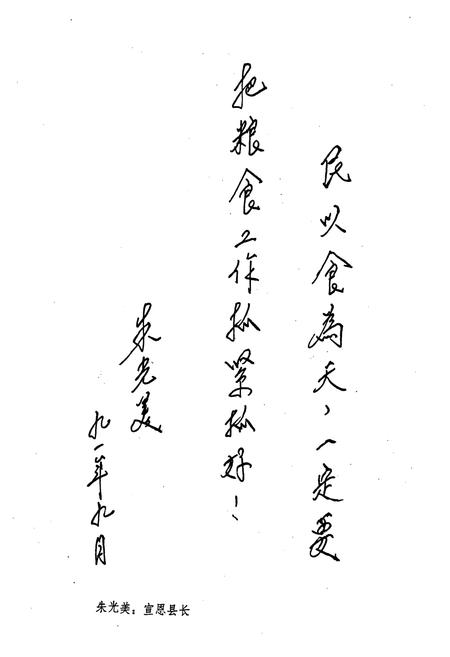 民以食為天，一定要
把粮食工作抓緊抓好！
朱光美
九一年九月
朱光美：宣恩县长